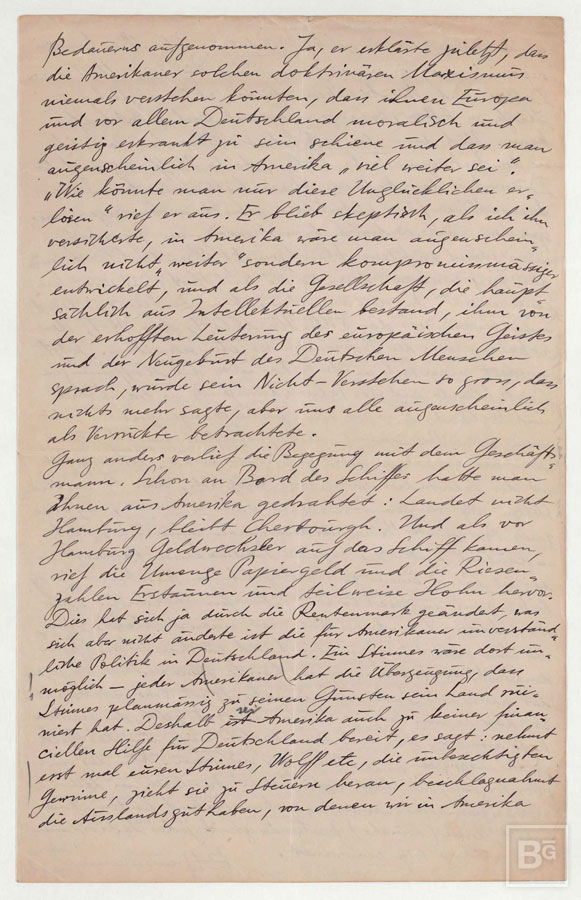 Bedauerns aufgenommen. Ja, er erklärte zuletzt, dass
die Amerikaner solchen doktrinären Maxismus
niemals verstehen könnten, dass ihnen Europa
und vor allem Deutschland moralisch und
geistig erkrankt zu sein schiene und dass man
augenscheinlich in Amerika „viel weiter sei".
„Wie könnte man nur diese Unglücklichen er-
lösen" rief er aus. Er blieb skeptisch, als ich ihm
versicherte, in Amerika wäre man augenschein-
lich nicht „weiter" sondern kompromissmässiger
entwickelt, und als die Gesellschaft, die haupt-
sächlich aus Intellektuellen bestand, ihm von
der erhofften Läuterung des europäischen Geistes
und der Neugeburt des Deutschen Menschen
sprach, wurde sein Nicht-Verstehen so gross, dass
nichts mehr sagte, aber uns alle augenscheinlich
als Verrückte betrachtete.
Ganz anders verlief die Begegnung mit dem Geschäfts-
mann. Schon an Bord des Schiffes hatte man
ihnen aus Amerika gedrahtet: Landet nicht
Hamburg, bleibt Cherbourgh. Und als vor
Hamburg Geldwechsler auf das Schiff kamen,
rief die Unmenge Papiergeld und die Riesen-
zahlen Erstaunen und teilweise Hohn hervor.
Dies hat sich ja durch die Rentenmark geändert, was
sich aber nicht änderte ist die für Amerikaner unverständ-
liche Politik in Deutschland. Ein Stinnes wäre dort un-
möglich – jeder Amerikaner hat die Überzeugung, dass
Stinnes planmässig zu seinen Gunsten sein Land rui-
niert hat. Deshalb sei Amerika auch zu keiner finan-
ciellen Hilfe für Deutschland bereit, es sagt: nehmt
erst mal euren Stinnes, Wolff etc, die unberechtigten
Gewinne, zieht sie zu Steuern heran, beschlagnahmt
die Auslandsguthaben, von denen wir in Amerika
BG